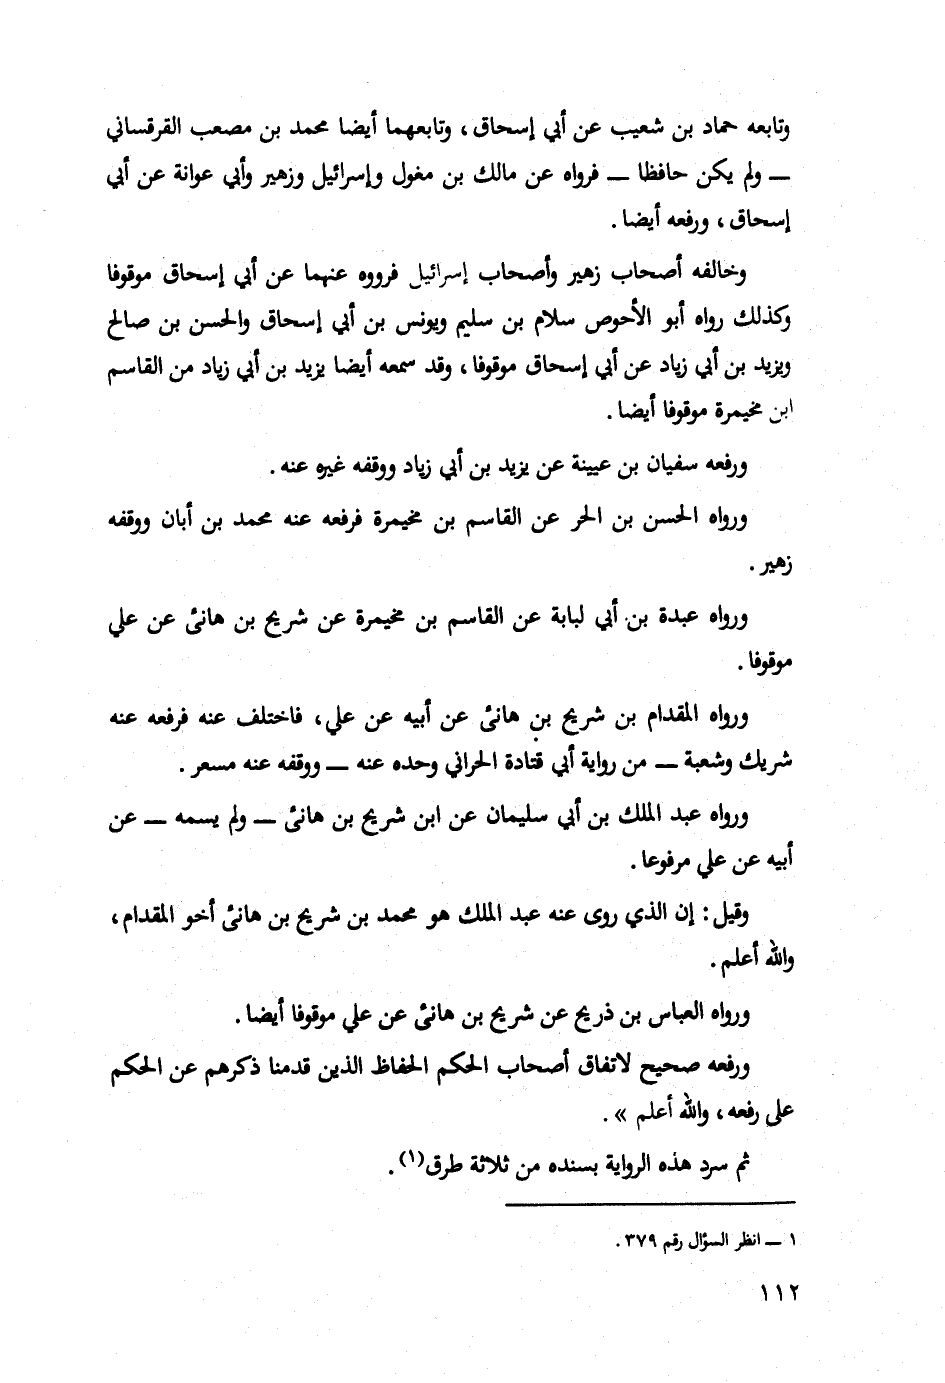 وتابعه حماد بن شعيب عن أبي إسحاق ، وتابعهما أيضا محمد بن مصعب القرقساني
ــ ولم يكن حافظا ــ فرواه عن مالك بن مغول وإسرائيل وزهير وأبي عوانة عن أبي
إسحاق ، ورفعه أيضا .
وخالفه أصحاب زهير وأصحاب إسرائيل فرووه عنهما عن أبي إسحاق موقوفا
وكذلك رواه أبو الأحوص سلام بن سليم ويونس بن أبي إسحاق والحسن بن صالح
ويزيد بن أبي زياد عن أبي إسحاق موقوفا ، وقد سمعه أيضا يزيد بن أبي زياد من القاسم
ابن مخيمرة موقوفا أيضا .
ورفعه سفيان بن عيينة عن يزيد بن أبي زياد ووقفه غيره عنه .
ورواه الحسن بن الحر عن القاسم بن مخيمرة فرفعه عنه محمد بن أبان ووقفه
زهير .
ورواه عبدة بن أبي لبابة عن القاسم بن مخيمرة عن شريح بن هانئ عن علي
موقوفا .
ورواه المقدام بن شريح بن هانئ عن أبيه عن علي ، فاختلف عنه فرفعه عنه
شريك وشعبة ــ من رواية أبي قتادة الحراني وحده عنه ــ ووقفه عنه مسعر .
ورواه عبد الملك بن أبي سليمان عن ابن شريح بن هانئ ــ ولم يسمه ــ عن
أبيه عن علي مرفوعا .
وقيل : إن الذي روى عنه عبد الملك هو محمد بن شريح بن هانئ أخو المقدام ،
والله أعلم .
ورواه العباس بن ذريح عن شريح بن هانئ عن علي موقوفا أيضا .
ورفعه صحيح لاتفاق أصحاب الحكم الحفاظ الذين قدمنا ذكرهم عن الحكم
على رفعه ، والله أعلم » .
ثم سرد هذه الرواية بسنده من ثلاثة طرق(١) .
١ ــ انظر السؤال رقم ٣٧٩ .
١١٢